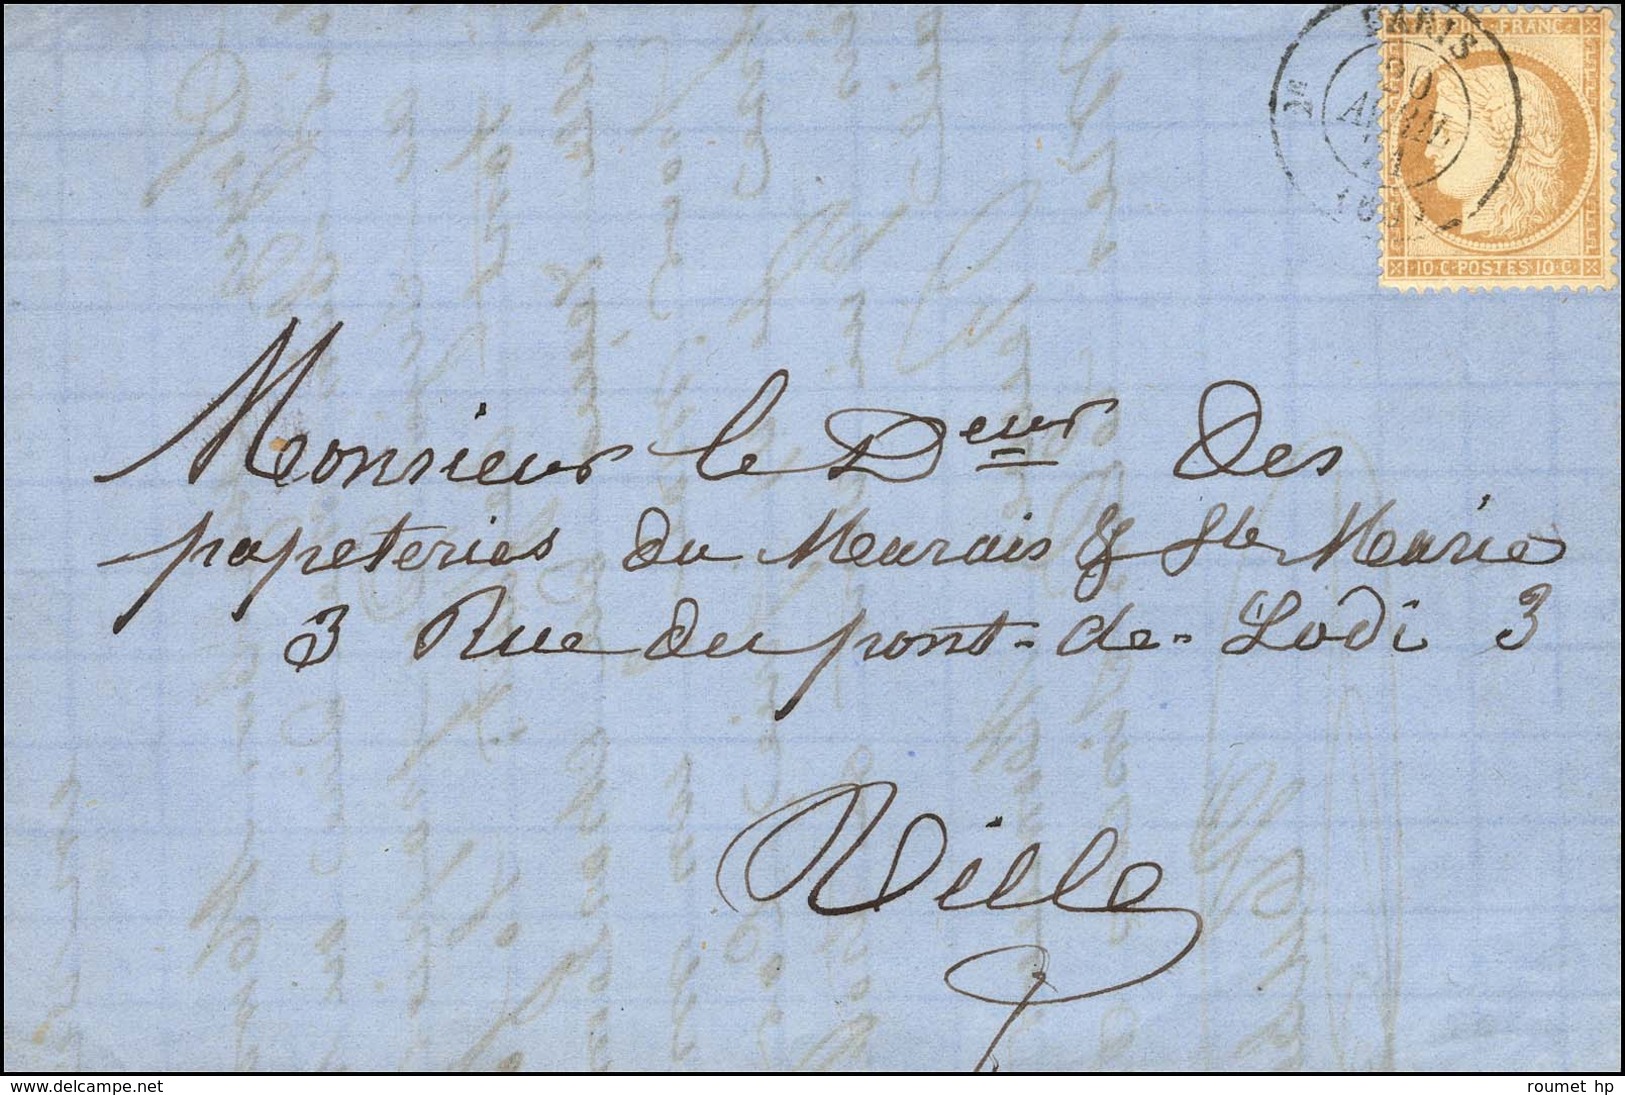 PARIS
20
AVRIL
REPUB. FRANC.
10 · C · POSTES 10 · C ·
Monsieur le Deur des
papeteries du Marais & Ste Marie
3 Rue du pont-de-Lodi 3
Ville
www.delcampe.net
roumet hp